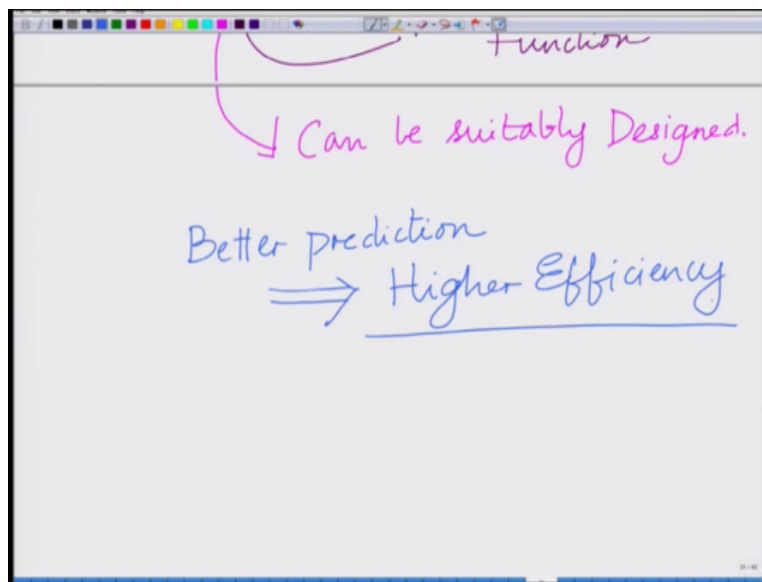 Function
Can be suitably Designed.
Better prediction
⇒ Higher Efficiency